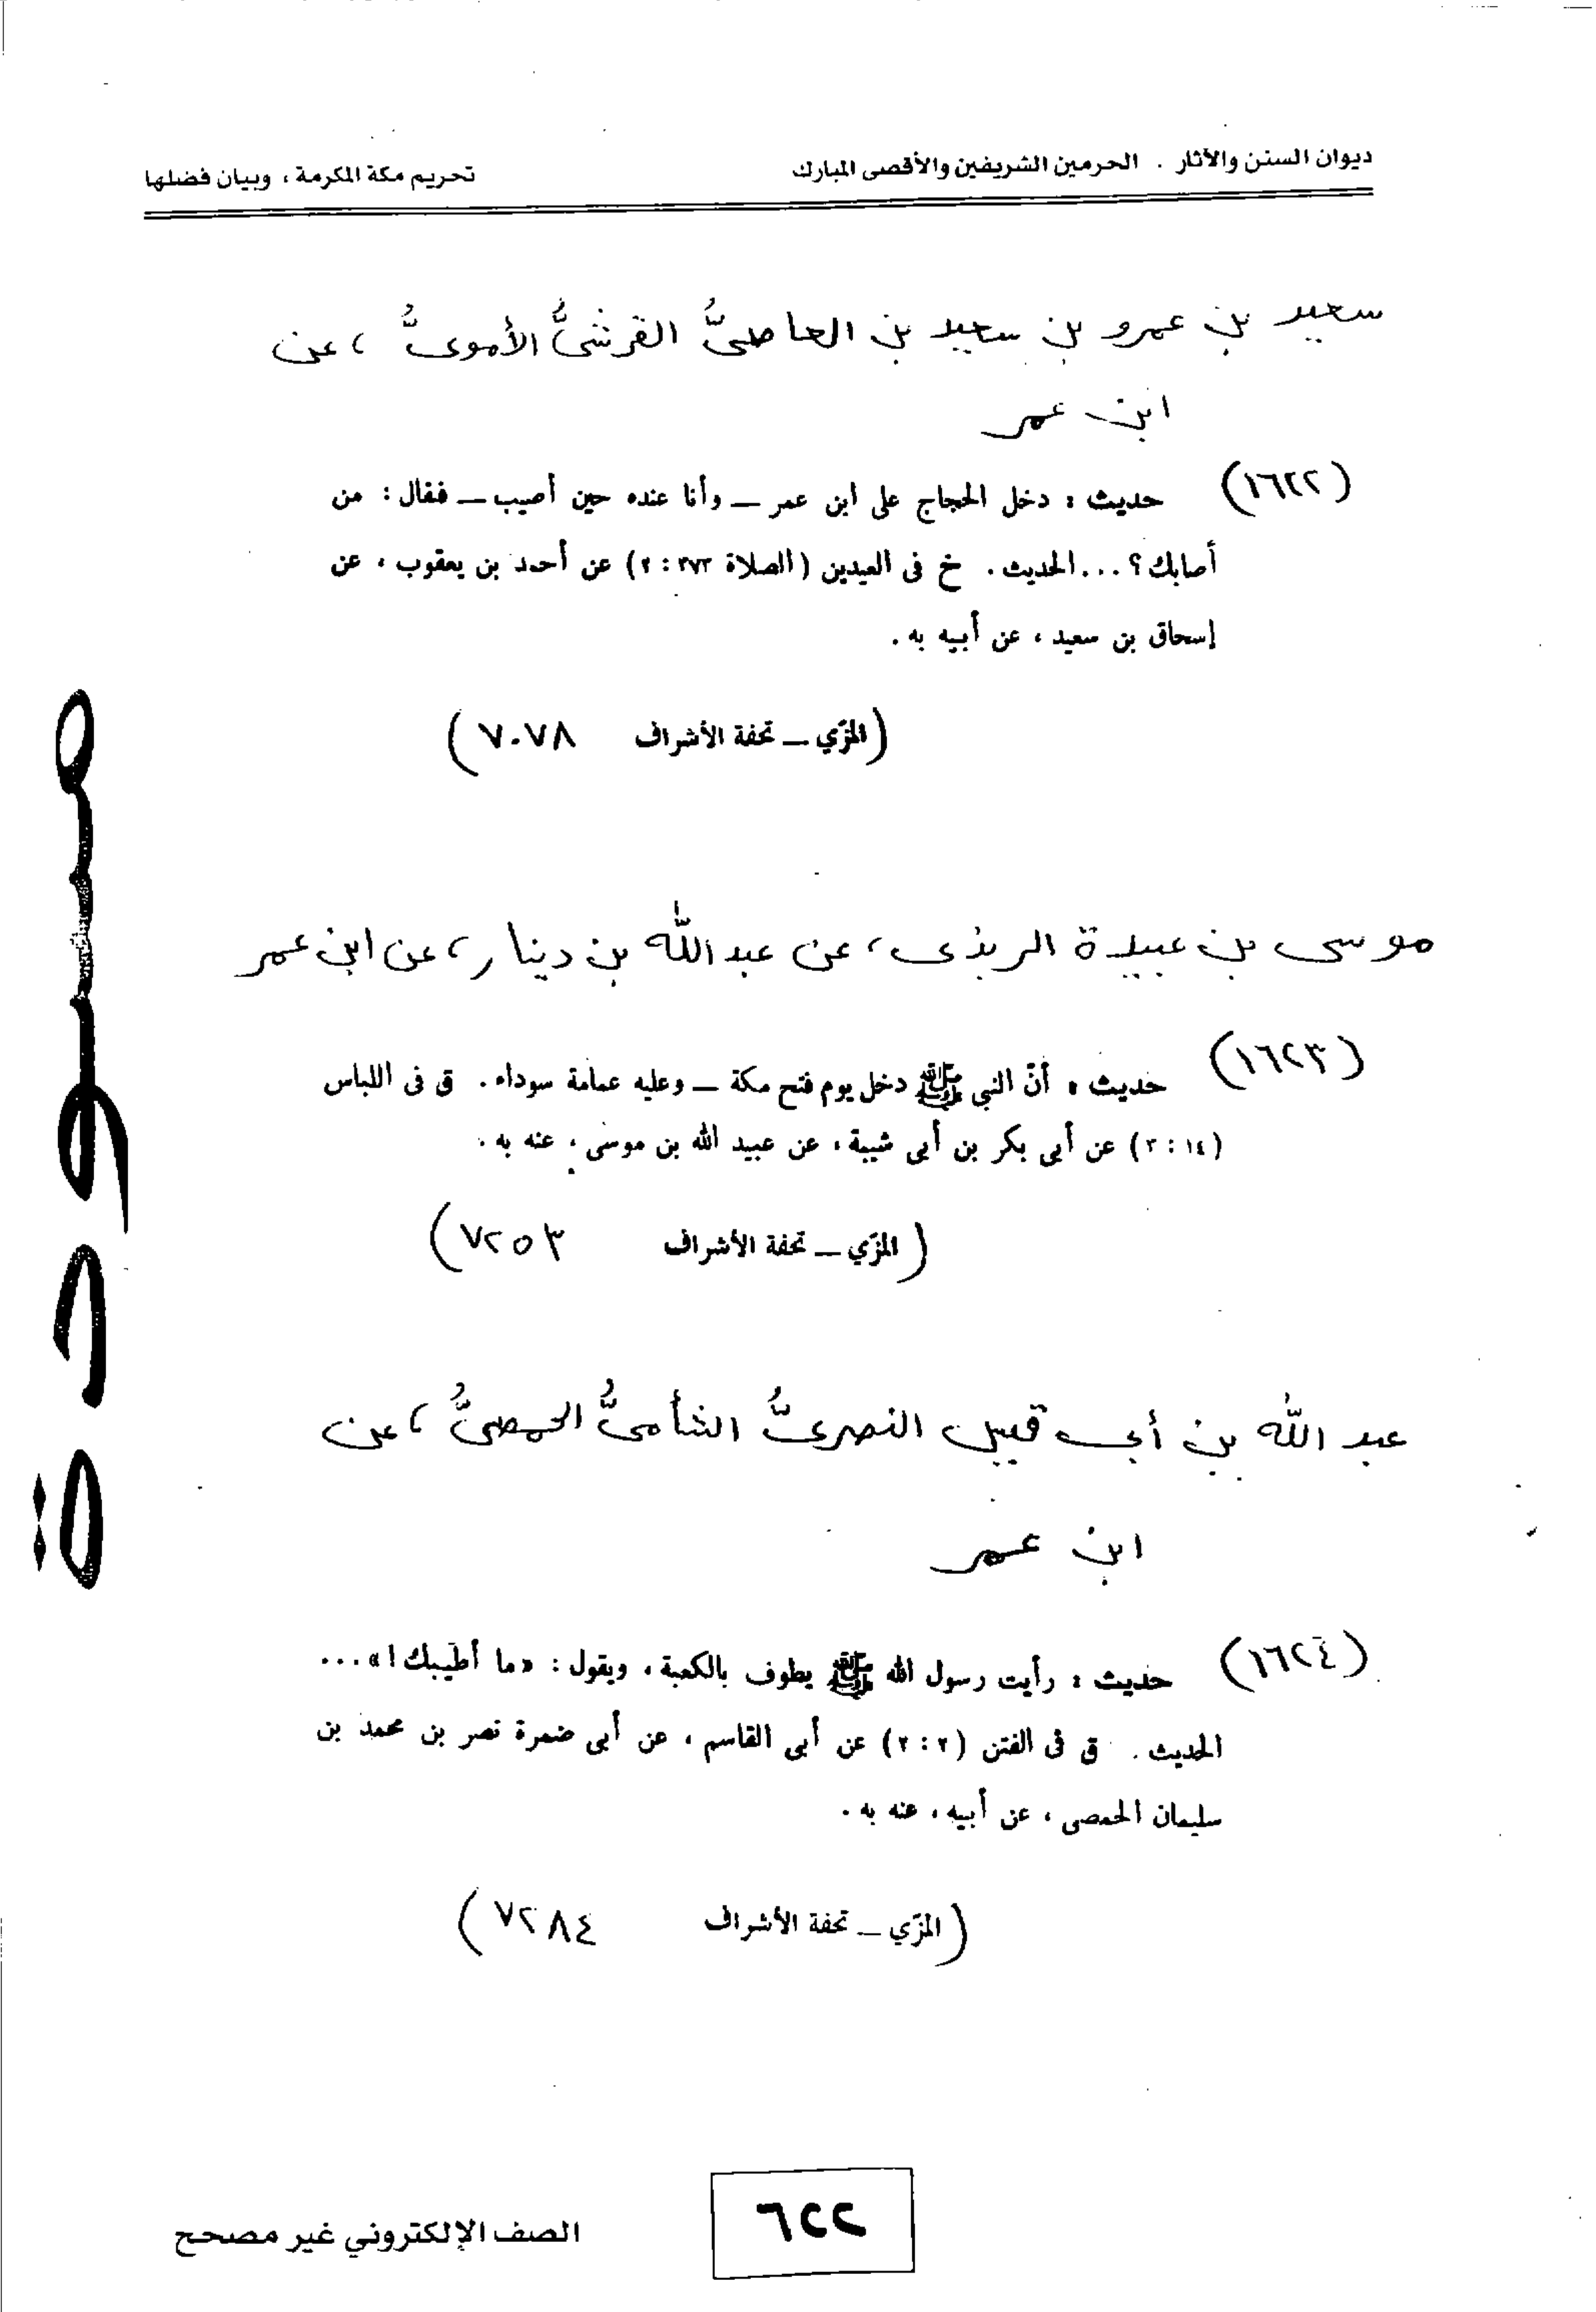 ديوان السنن والآثار . الحرمين الشريفين والأقصى المبارك
تحريم مكة المكرمة ، وبيان فضلها
سعيد بن عمرو بن سعيد بن العاصيُّ القرشيُّ الأمويُّ ، عن
ابن عمر
(١٦٢٢) حديث : دخل الحجاج على ابن عمر — وأنا عنده حين أصيب — فقال : من
أصابك ؟ ... الحديث . خ فى العيدين (الصلاة ٣٧٣ : ٢) عن أحمد بن يعقوب ، عن
إسحاق بن سعيد ، عن أبيه به .
(المزّي — تحفة الأشراف ٧٠٧٨)
موسى بن عبيدة الربذى ، عن عبد الله بن دينار ، عن ابن عمر
(١٦٢٣) حديث : أنّ النبي ﷺ دخل يوم فتح مكة — وعليه عمامة سوداء . ق فى اللباس
(١٤ : ٣) عن أبى بكر بن أبى شيبة ، عن عبيد الله بن موسى ، عنه به .
(المزّي — تحفة الأشراف ٧٢٥٣)
عبد الله بن أبي قيس النصريُّ الشأميُّ الحمصيُّ ، عن
ابن عمر
(١٦٢٤) حديث : رأيت رسول الله ﷺ يطوف بالكعبة ، ويقول : «ما أطيبك !» ...
الحديث . ق فى الفتن (٢ : ٢) عن أبى القاسم ، عن أبى ضمرة نصر بن محمد بن
سليمان الحمصى ، عن أبيه ، عنه به .
(المزّي — تحفة الأشراف ٧٢٨٤)
مسودة
٦٢٢
الصف الإلكتروني غير مصحح